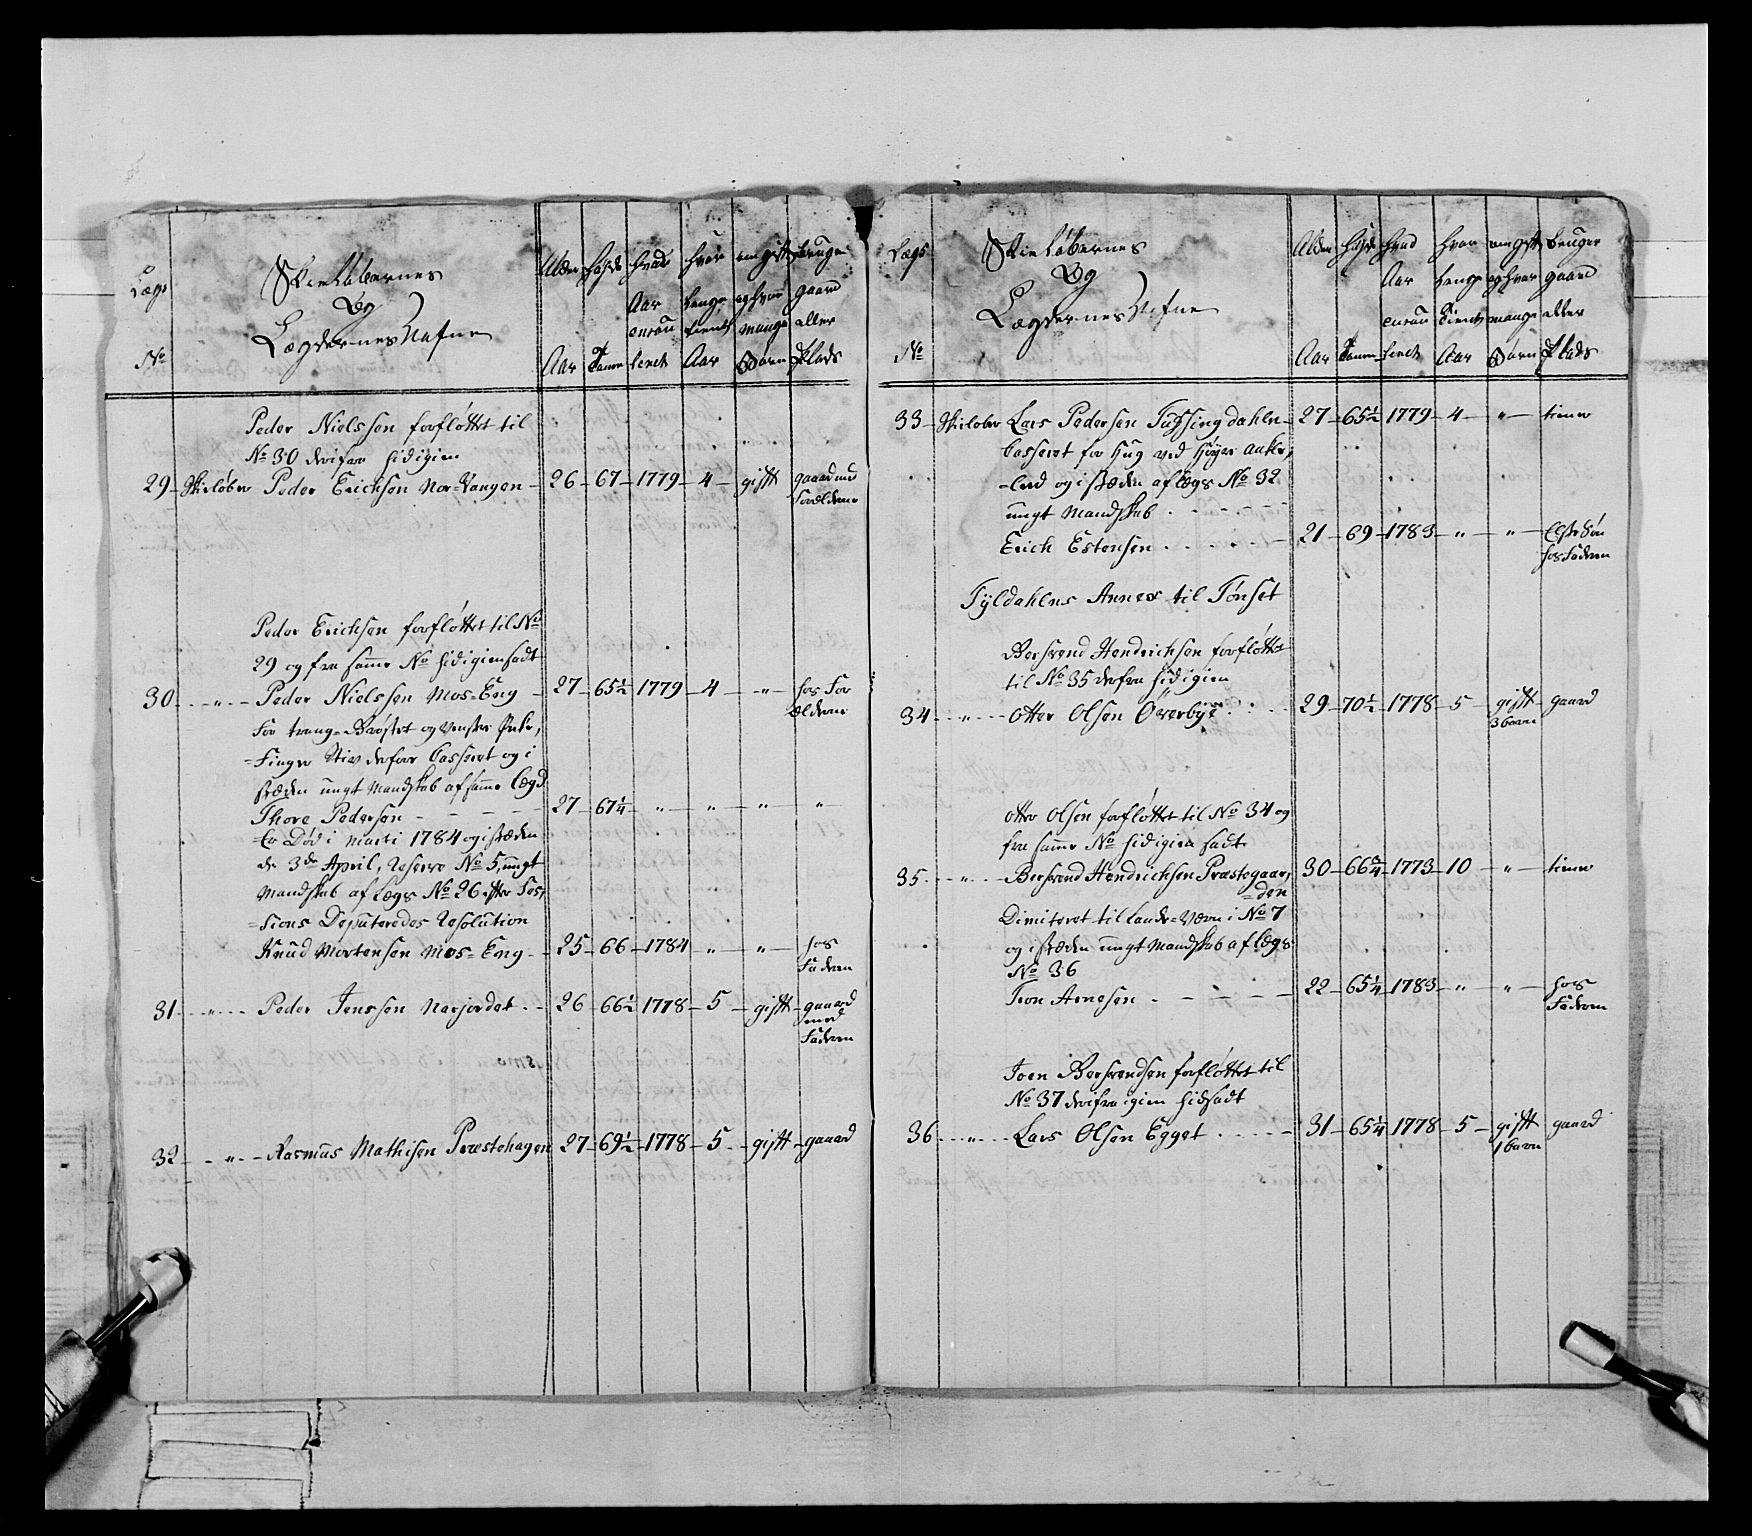 Lægs
No
Skie Løbernes
Og
Lægdernes Nafne
Alder
Aar
Høyde
Tomme
Hvad
Aar
enrou
lerdt
Hvor
længe
tient
Aar
om gift
og hvor
mange
Børn
bruger
gaard
eller
Plads
Peder Nielssen forfløttet til
No 30 derifra hidigien
29 Skieløber Peder Erichsen Nor=Vangen 26 67 1779 4 gift gaard med
Forældrene
Peder Erichsen forfløttet til No
29 og fra samme No hidigien sadt
30 " Peder Nielssen Mos=Eng 27 65½ 1779 4 " hos For
ældrene
For trang=Brøstet og venstre Peke,
=Finger Stiv derfor Casseret og i
stæden ungt Mandskab af samme Lægd
Thore Pedersen 27 67¼ " " " "
Er Død i Marti 1784 og i stæden
de 3de April, Reserve No 5, ungt
Mandskab af Lægs No 26 efter Ses,
=sions Deputeredes Resolution
Knud Mortensen Mos=Eng 25 66 1784 " " hos
Faderen
31 " Peder Jenssen Narjordet 26 66½ 1778 5 gift gaard
med
Faderen
32 " Rasmus Mathisen Præstehagen 27 69½ 1778 5 gift gaard
Lægs
No
Skie Løbernes
Og
Lægdernes Nafne
Alder
Aar
Høyde
Tomme
Hvad
Aar
enrou
lerdt
Hvor
længe
tient
Aar
om gift
og hvor
mange
Børn
bruger
gaard
eller
Plads
33 Skieløber Lars Pedersen Fugsingdahlen 27 65½ 1779 4 " tiener
Casseret for Hug ved Høyre ankr,
=led og i stæden af Lægs No 32
ungt Mandskab
Erich Estensen 21 69 1783 " " Elste Søn
hos Faderen
Tyldahlns Annex til Tønset
Bersvend Hendrichsen forfløttet
til No 35 derfra hidigien
34 " Otter Olsen Øverbye 29 70½ 1778 5 gift gaard
3 børn
Otter Olsen forfløttet til No 34 og
fra samme No hidigien sadt
35 " Bersvend Hendrichsen Præstegaar, 30 66¾ 1773 10 " tiener
=den
Dimiteret til Lande=Værn i No 7
og i stæden ungt Mandskab af Lægs
No 36
Tron Arnesen 22 65¼ 1783 " " hos
Faderen
Joen Bersvendsen forfløttet til
No 37 derifra igien hidsadt
36 " Lars Olsen Egget 31 65¼ 1778 5 gift gaard
1 barn